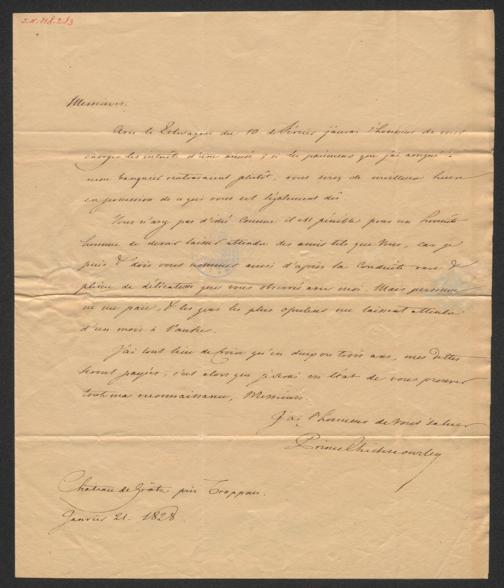 Messieurs.
Avec le du 10 de Février j'aurai l'honneur de vous
envoyer les intérêts d'une année; si les paiemens que j'ai assigné à
mon banquier rentraient plutôt, vous serez de meilleure heure
en possession de ce qui vous est légalement dû.
Vous n'avez pas d'idée comme il est pénible pour un honnête
homme de devoir laisser attendre des amis tels que Vous, car je
puis & dois vous nommer ainsi d'après la conduite rare &
pleine de délicatesse que vous observés avec moi. Mais personne
ne me paie, & les gens les plus opulens me laissent attendre
d'un mois à l'autre.
J'ai tout lieu de croire qu'en deux ou trois ans, mes dettes
seront payées; c'est alors que je serai en état de vous prouver
toute ma reconnaissance, Messieurs.
J'ai l'honneur de vous saluer
Prince Lichnowsky
Chateau de Grätz près Troppau.
Janvier 21. 1828